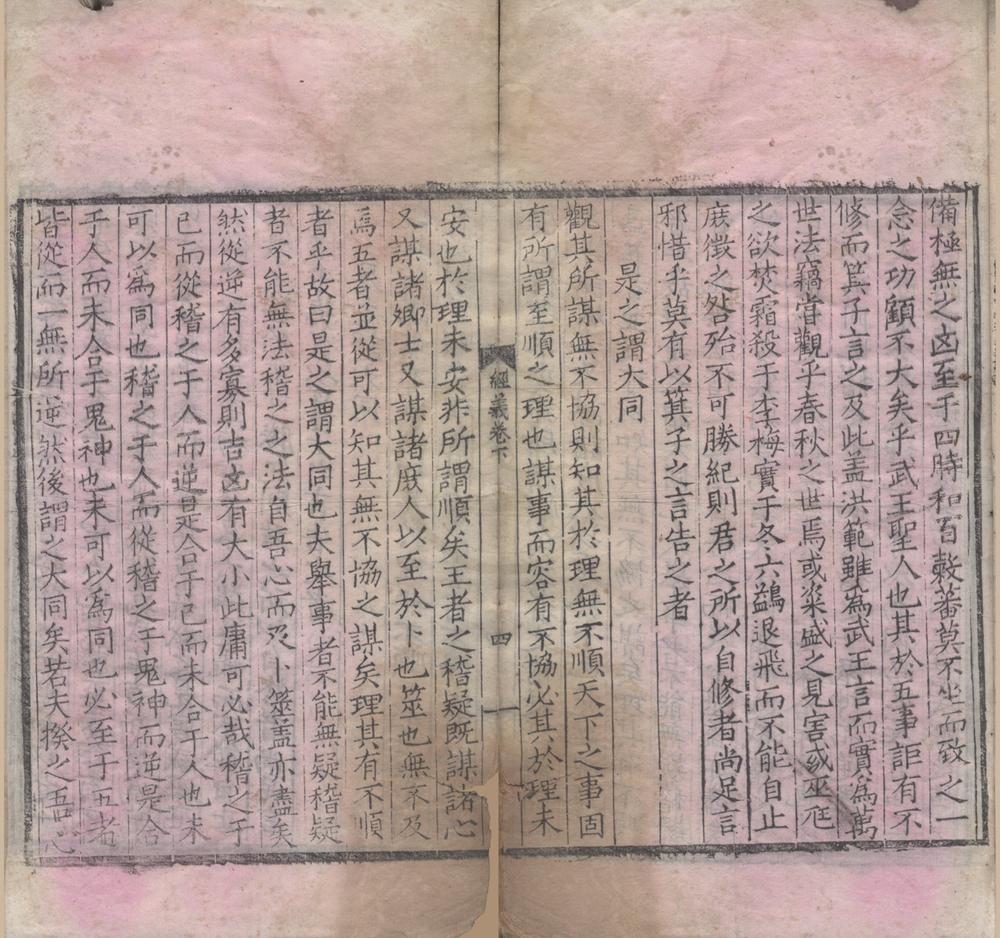 備極無之凶至于四時和百穀蕃莫不坐而致之一
念之功顧不大矣乎武王聖人也其於五事詎有不
修而箕子言之及此盖洪範雖爲武王言而實爲萬
世法竊嘗觀乎春秋之世焉或粢盛之見害或巫尫
之欲焚霜殺于李梅實于冬六鷁退飛而不能自止
庶徵之咎殆不可勝紀則君之所以自修者尚足言
邪惜乎莫有以箕子之言告之者
是之謂大同
觀其所謀無不協則知其於理無不順天下之事固
有所謂至順之理也謀事而容有不協必其於理未
經義卷下
四
安也於理未安非所謂順矣王者之稽疑既謀諸心
又謀諸卿士又謀諸庶人以至於卜也筮也無不及
焉五者並從可以知其無不協之謀矣理其有不順
者乎故曰是之謂大同也夫舉事者不能無疑稽疑
者不能無法稽之之法自吾心而及卜筮盖亦盡矣
然從逆有多寡則吉凶有大小此庸可必哉稽之于
已而從稽之于人而逆是合于已而未合于人也未
可以爲同也稽之于人而從稽之于鬼神而逆是合
于人而未合于鬼神也未可以爲同也必至于五者
皆從而一無所逆然後謂之大同矣若夫揆之吾心